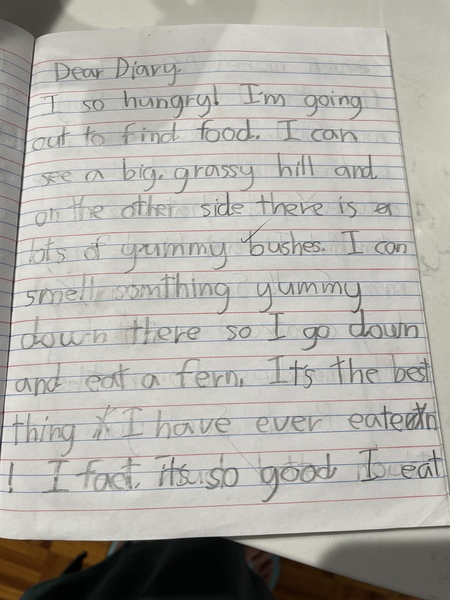 Dear Diary.
I so hungry! I'm going
out to find food. I can
see a big, grassy hill and
on the other side there is a
lots of yummy bushes. I can
smell somthing yummy
down there so I go down
and eat a fern. It's the best
thing I have ever eaten
! I fact, its so good I eat